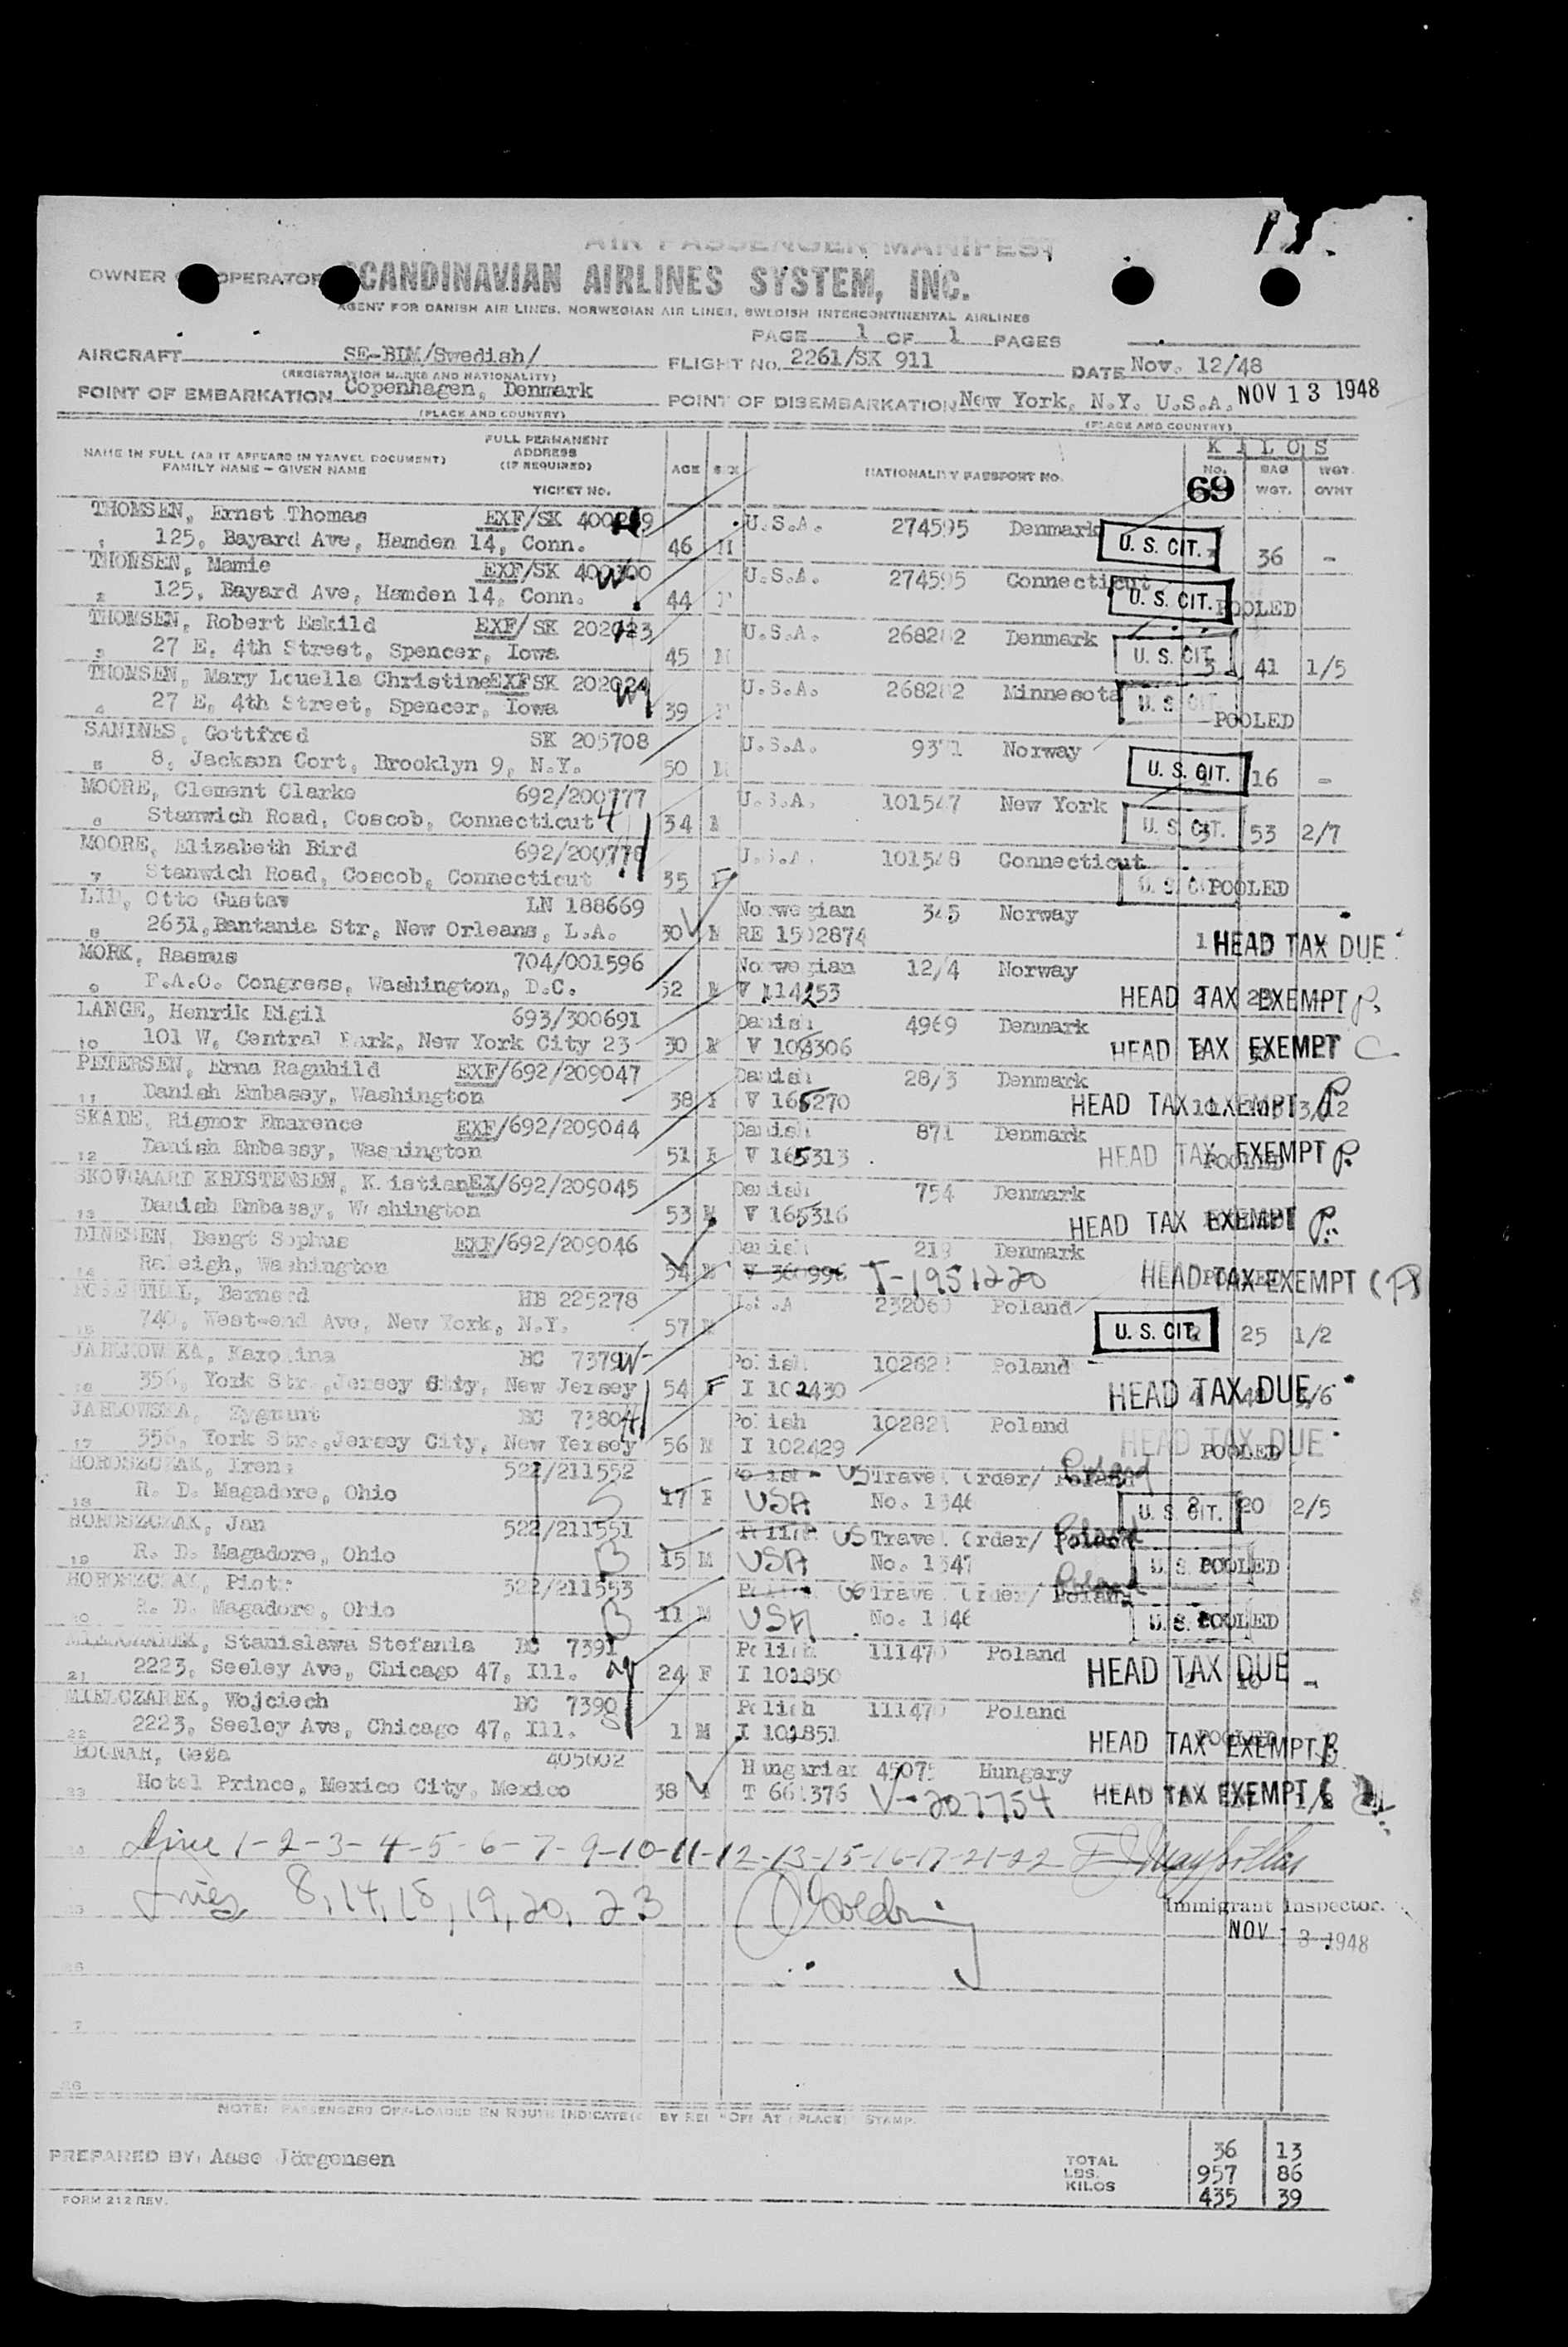 AIR PASSENGER MANIFEST
OWNER OPERATOR SCANDINAVIAN AIRLINES SYSTEM, INC.
AGENT FOR DANISH AIR LINES, NORWEGIAN AIR LINES, SWEDISH INTERCONTINENTAL AIRLINES
PAGE 1 OF 1 PAGES
AIRCRAFT SE-BIM/Swedish/ FLIGHT No. 2261/SK 911 DATE Nov. 12/48
(REGISTRATION MARKS AND NATIONALITY)
POINT OF EMBARKATION Copenhagen, Denmark POINT OF DISEMBARKATION New York, N.Y. U.S.A. NOV 13 1948
(PLACE AND COUNTRY) (PLACE AND COUNTRY)
NAME IN FULL (AS IT APPEARS IN TRAVEL DOCUMENT) FAMILY NAME - GIVEN NAME FULL PERMANENT ADDRESS (IF REQUIRED) TICKET NO. AGE SEX NATIONALITY PASSPORT NO. KILOS No. BAG WGT. WGT. OVWT
69
THOMSEN, Ernst Thomas EXF/SK U.S.A. 274595 Denmark U. S. CIT.
1 125, Bayard Ave, Hamden 14, Conn. 46 M 3 36 -
THOMSEN, Mamie EXF/SK 400300 W U.S.A. 274595 Connecticut U. S. CIT.
2 125, Bayard Ave, Hamden 14, Conn. 44 F POOLED
THOMSEN, Robert Eskild EXF/SK U.S.A. 268282 Denmark U. S. CIT.
3 27 E. 4th Street, Spencer, Iowa 45 M 3 41 1/5
THOMSEN, Mary Louella Christine EXF SK 202024 W U.S.A. 268282 Minnesota U. S. CIT.
4 27 E. 4th Street, Spencer, Iowa 39 F POOLED
SANINES, Gottfred SK 205708 U.S.A. 9371 Norway U. S. CIT.
5 8, Jackson Cort, Brooklyn 9, N.Y. 50 M 1 16 -
MOORE, Clement Clarke 692/200777 U.S.A. 101547 New York U. S. CIT.
6 Stanwich Road, Coscob, Connecticut 34 M 3 53 2/7
MOORE, Elizabeth Bird 692/200778 U.S.A. 101548 Connecticut U. S. CIT.
7 Stanwich Road, Coscob, Connecticut 35 F POOLED
LID, Otto Gustav LN 188669 Norwegian 345 Norway
8 2631, Bantania Str, New Orleans, L.A. 30 M RE 1502874 1 HEAD TAX DUE
MORK, Rasmus 704/001596 Norwegian 12/4 Norway
9 F.A.O. Congress, Washington, D.C. 52 M V 114253 HEAD TAX EXEMPT P.
LANGE, Henrik Eigil 693/300691 Danish 4969 Denmark
10 101 W. Central Park, New York City 23 30 M V 108306 HEAD TAX EXEMPT C
PETERSEN, Erna Raguhild EXF/692/209047 Danish 28/3 Denmark
11 Danish Embassy, Washington 38 F V 165270 HEAD TAX EXEMPT P.
SKADE, Rigmor Emarence EXF/692/209044 Danish 871 Denmark
12 Danish Embassy, Washington 51 F V 165313 HEAD TAX EXEMPT P.
SKOVGAARD KRISTENSEN, Kristian EX/692/209045 Danish 754 Denmark
13 Danish Embassy, Washington 53 M V 165316 HEAD TAX EXEMPT P.
DINESEN, Bengt Sophus EXF/692/209046 Danish 219 Denmark
14 Raleigh, Washington 54 M V 360996 T-1951220 HEAD TAX EXEMPT (P)
ROSENTHAL, Bernard HB 225278 U.S.A 232060 Poland
15 740, West-end Ave, New York, N.Y. 57 M U. S. CIT. 25 1/2
JABLKOWSKA, Karolina BC 7379 W Polish 102822 Poland
16 356, York Str., Jersey City, New Jersey 54 F I 102430 HEAD TAX DUE
JABLOWSKA, Zygmunt BC 7380 Polish 102821 Poland
17 356, York Str., Jersey City, New Yersey 56 M I 102429 HEAD TAX DUE POOLED
HOROSZCZAK, Irena 522/211552 US Travel Order/ Poland Poland
18 R. D. Magadore, Ohio 17 F USA No. 1346 U. S. CIT. 20 2/5
HOROSZCZAK, Jan 522/211551 US Travel Order/ Poland Poland
19 R. D. Magadore, Ohio B 15 M USA No. 1347 U. S. POOLED
HOROSZCZAK, Piotr 522/211553 US Travel Order/ Poland Poland
20 R. D. Magadore, Ohio B 11 M USA No. 1346 U. S. POOLED
MIELCZAREK, Stanislawa Stefania BC 7391 Polish 111470 Poland
21 2223, Seeley Ave, Chicago 47, Ill. 24 F I 102850 HEAD TAX DUE -
MIELCZAREK, Wojciech BC 7390 Polish 111470 Poland
22 2223, Seeley Ave, Chicago 47, Ill. 1 M I 102851 HEAD TAX EXEMPT P
BOGNAR, Geza 405602 Hungarian 45075 Hungary
23 Hotel Prince, Mexico City, Mexico 38 T 661376 V-207754 HEAD TAX EXEMPT
Line 1-2-3-4-5-6-7-9-10-11-12-13-15-16-17-21-22
Lines 8, 14, 18, 19, 20, 23
Immigrant Inspector.
NOV 13 1948
26
NOTE: PASSENGERS OFF-LOADED EN ROUTE INDICATED BY RED "OFF AT (PLACE)" STAMP.
PREPARED BY: Aase Jörgensen
TOTAL 36 13
LBS. 957 86
KILOS 435 39
FORM 212 REV.